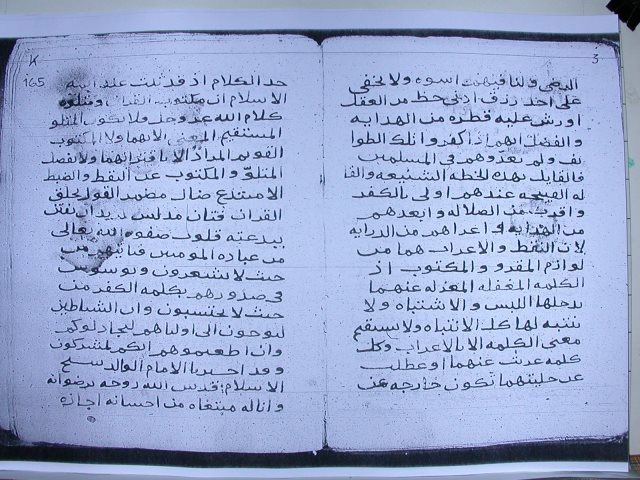 3
النبي ولنا فيهما اسوه ولا يخفى
على احد رزق ادنى حظ من العقل
او رش عليه قطره من الهدايه
والفضل انهم اذا كفروا تلك الطوا
يف ولم يعدوهم في المسلمين
فالقايل بهذه الخطه الشنيعه والقا
له القبيحه عندهم اولى بالكفر
واقرب من الضلاله وابعدهم
من الهدايه واعراهم من الدرايه
لان النقط والاعراب هما من
لوازم المقرو والمكتوب اذ
الكلمه المغفله المعراه عنهما
يدخلها اللبس والاشتباه ولا
ينتبه لها كل الانتباه ولا يستقيم
معنى الكلمه الا بالاعراب وكل
كلمه عريت عنهما او عطلت
عن حليتهما تكون خارجه عن
K
165
حد الكلام اذ قد ثبت عند ايمه
الاسلام ان مكتوب القران ومتلوه
كلام الله عز وجل ولا يكون المتلو
المستقيم المعنى الا بهما ولا المكتوب
القويم المراد الا باقترانهما ولا يفصل
المتلو والمكتوب عن النقط والضبط
الا مبتدع ضال مضمر القول بخلق
القران فتان مدلس يريد ان يفتن
ببدعته قلوب صفوه الله تعالى
من عباده المومنين فياتيهم من
حيث لا يشعرون ويوسوس
في صدورهم بكلمه الكفر من
حيث لا يحتسبون وان الشياطين
ليوحون الى اوليائهم ليجادلوكم
وان اطعتموهم انكم لمشركون
وقد اخبرنا الامام الوالد شيخ
الاسلام قدس الله روحه برضوانه
واناله مبتغاه من احسانه اجازه